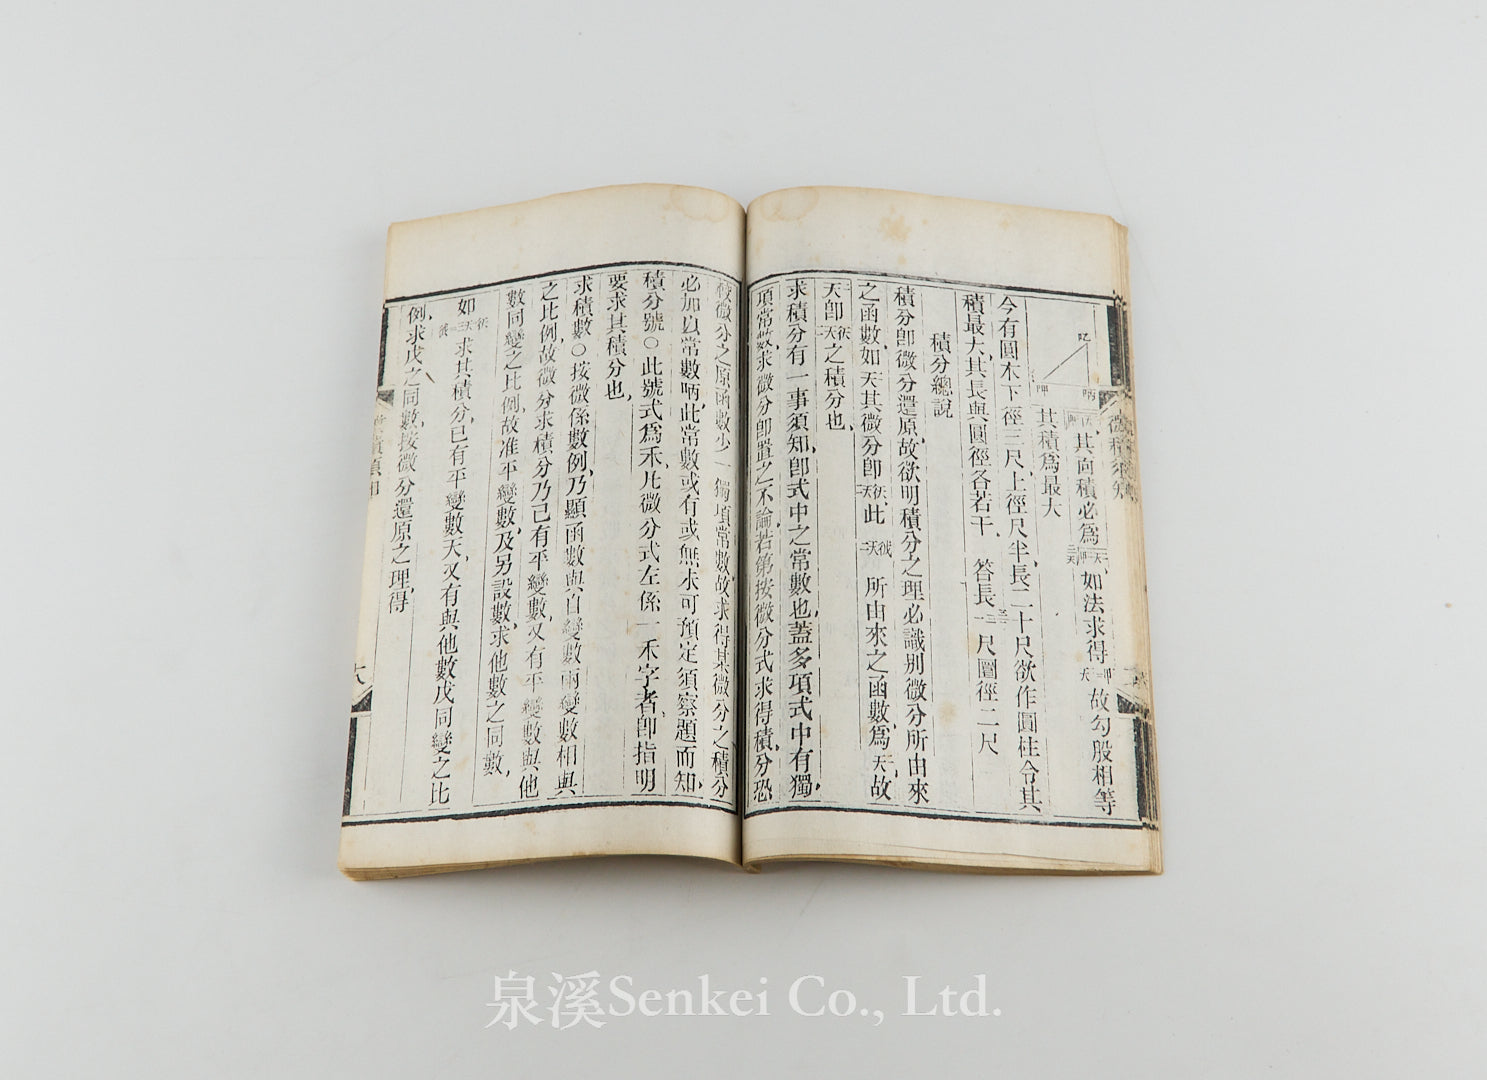 其向積必爲
如法求得
故勾股相等
其積爲最大
今有圓木下徑三尺上徑尺半長二十尺欲作圓柱令其
積最大其長與圓徑各若干 答長
尺圓徑二尺
積分總說
積分卽微分還原故欲明積分之理必識別微分所由來
之函數如天其微分卽
此
所由來之函數爲天故
天卽
之積分也
求積分有一事須知卽式中之常數也蓋多項式中有獨
項常數求微分卽置之不論若第按微分式求得積分恐
較微分之原函數少一獨項常數故求得某微分之積分
必加以常數㖤此常數或有或無未可預定須察題而知
積分號○此號式爲禾凡微分式左係一禾字者卽指明
要求其積分也
求積數○按微係數例乃顯函數與自變數兩變數相與
之比例故微分求積分乃已有平變數又有平變數與他
數同變之比例故准平變數及另設數求他數之同數
如
求其積分已有平變數天又有與他數戊同變之比
例求戊之同數按微分還原之理得
微積須知
泉溪Senkei Co., Ltd.